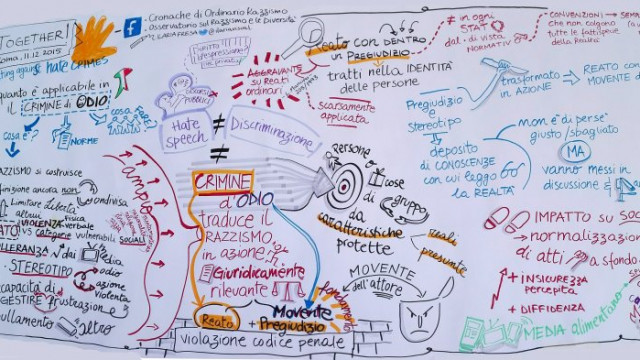 TOGETHER!
11.12.2015
HATE CRIMES
quanto è applicabile in
il
CRIMINE di ODIO?
cosa è?
cosa FARE?
NORME
RAZZISMO si costruisce
ancora non
condivisa
Limitare libertà
alieni
VIOLENZA fisica
verbale
vs categorie vulnerabili SOCIALI
dai Media
odio
STEREOTIPO
azione
violenta
capacità di
GESTIRE frustrazione e
altro
Ampio
- Cronache di Ordinario Razzismo
- Osservatorio sul Razzismo e le Diversità
Diritto di
espressione
Hate
speech
≠
Discriminazione
≠
AGGRAVANTE
su Reati
ordinari
CRIMINE
d'ODIO
traduce il
RAZZISMO
in azione
Giuridicamente
rilevante
Reato
+
Movente
Pregiudizio
fondamento
violazione codice penale
Reato con DENTRO
un PREGIUDIZIO
tratti nella IDENTITÀ
delle persone
scarsamente
applicata
Persone
o cose
o gruppo
di
da
caratteristiche
protette
reali
presunte
MOVENTE
dell'attore
≠ in ogni
STATO
dal p. di vista
NORMATIVO
CONVENZIONI →
che non colgono
tutte le fattispecie
della Realtà
trasformato
in AZIONE
→ REATO con
MOVENTE
Pregiudizio
e
Stereotipo
deposito
di CONOSCENZE
con cui leggo
la REALTÀ
non è di per sé
giusto/sbagliato
MA
vanno messi in
discussione
IMPATTO su
→ normalizzazione
di atti a sfondo
+ INSICUREZZA
percepita
+ DIFFIDENZA
MEDIA alimentano